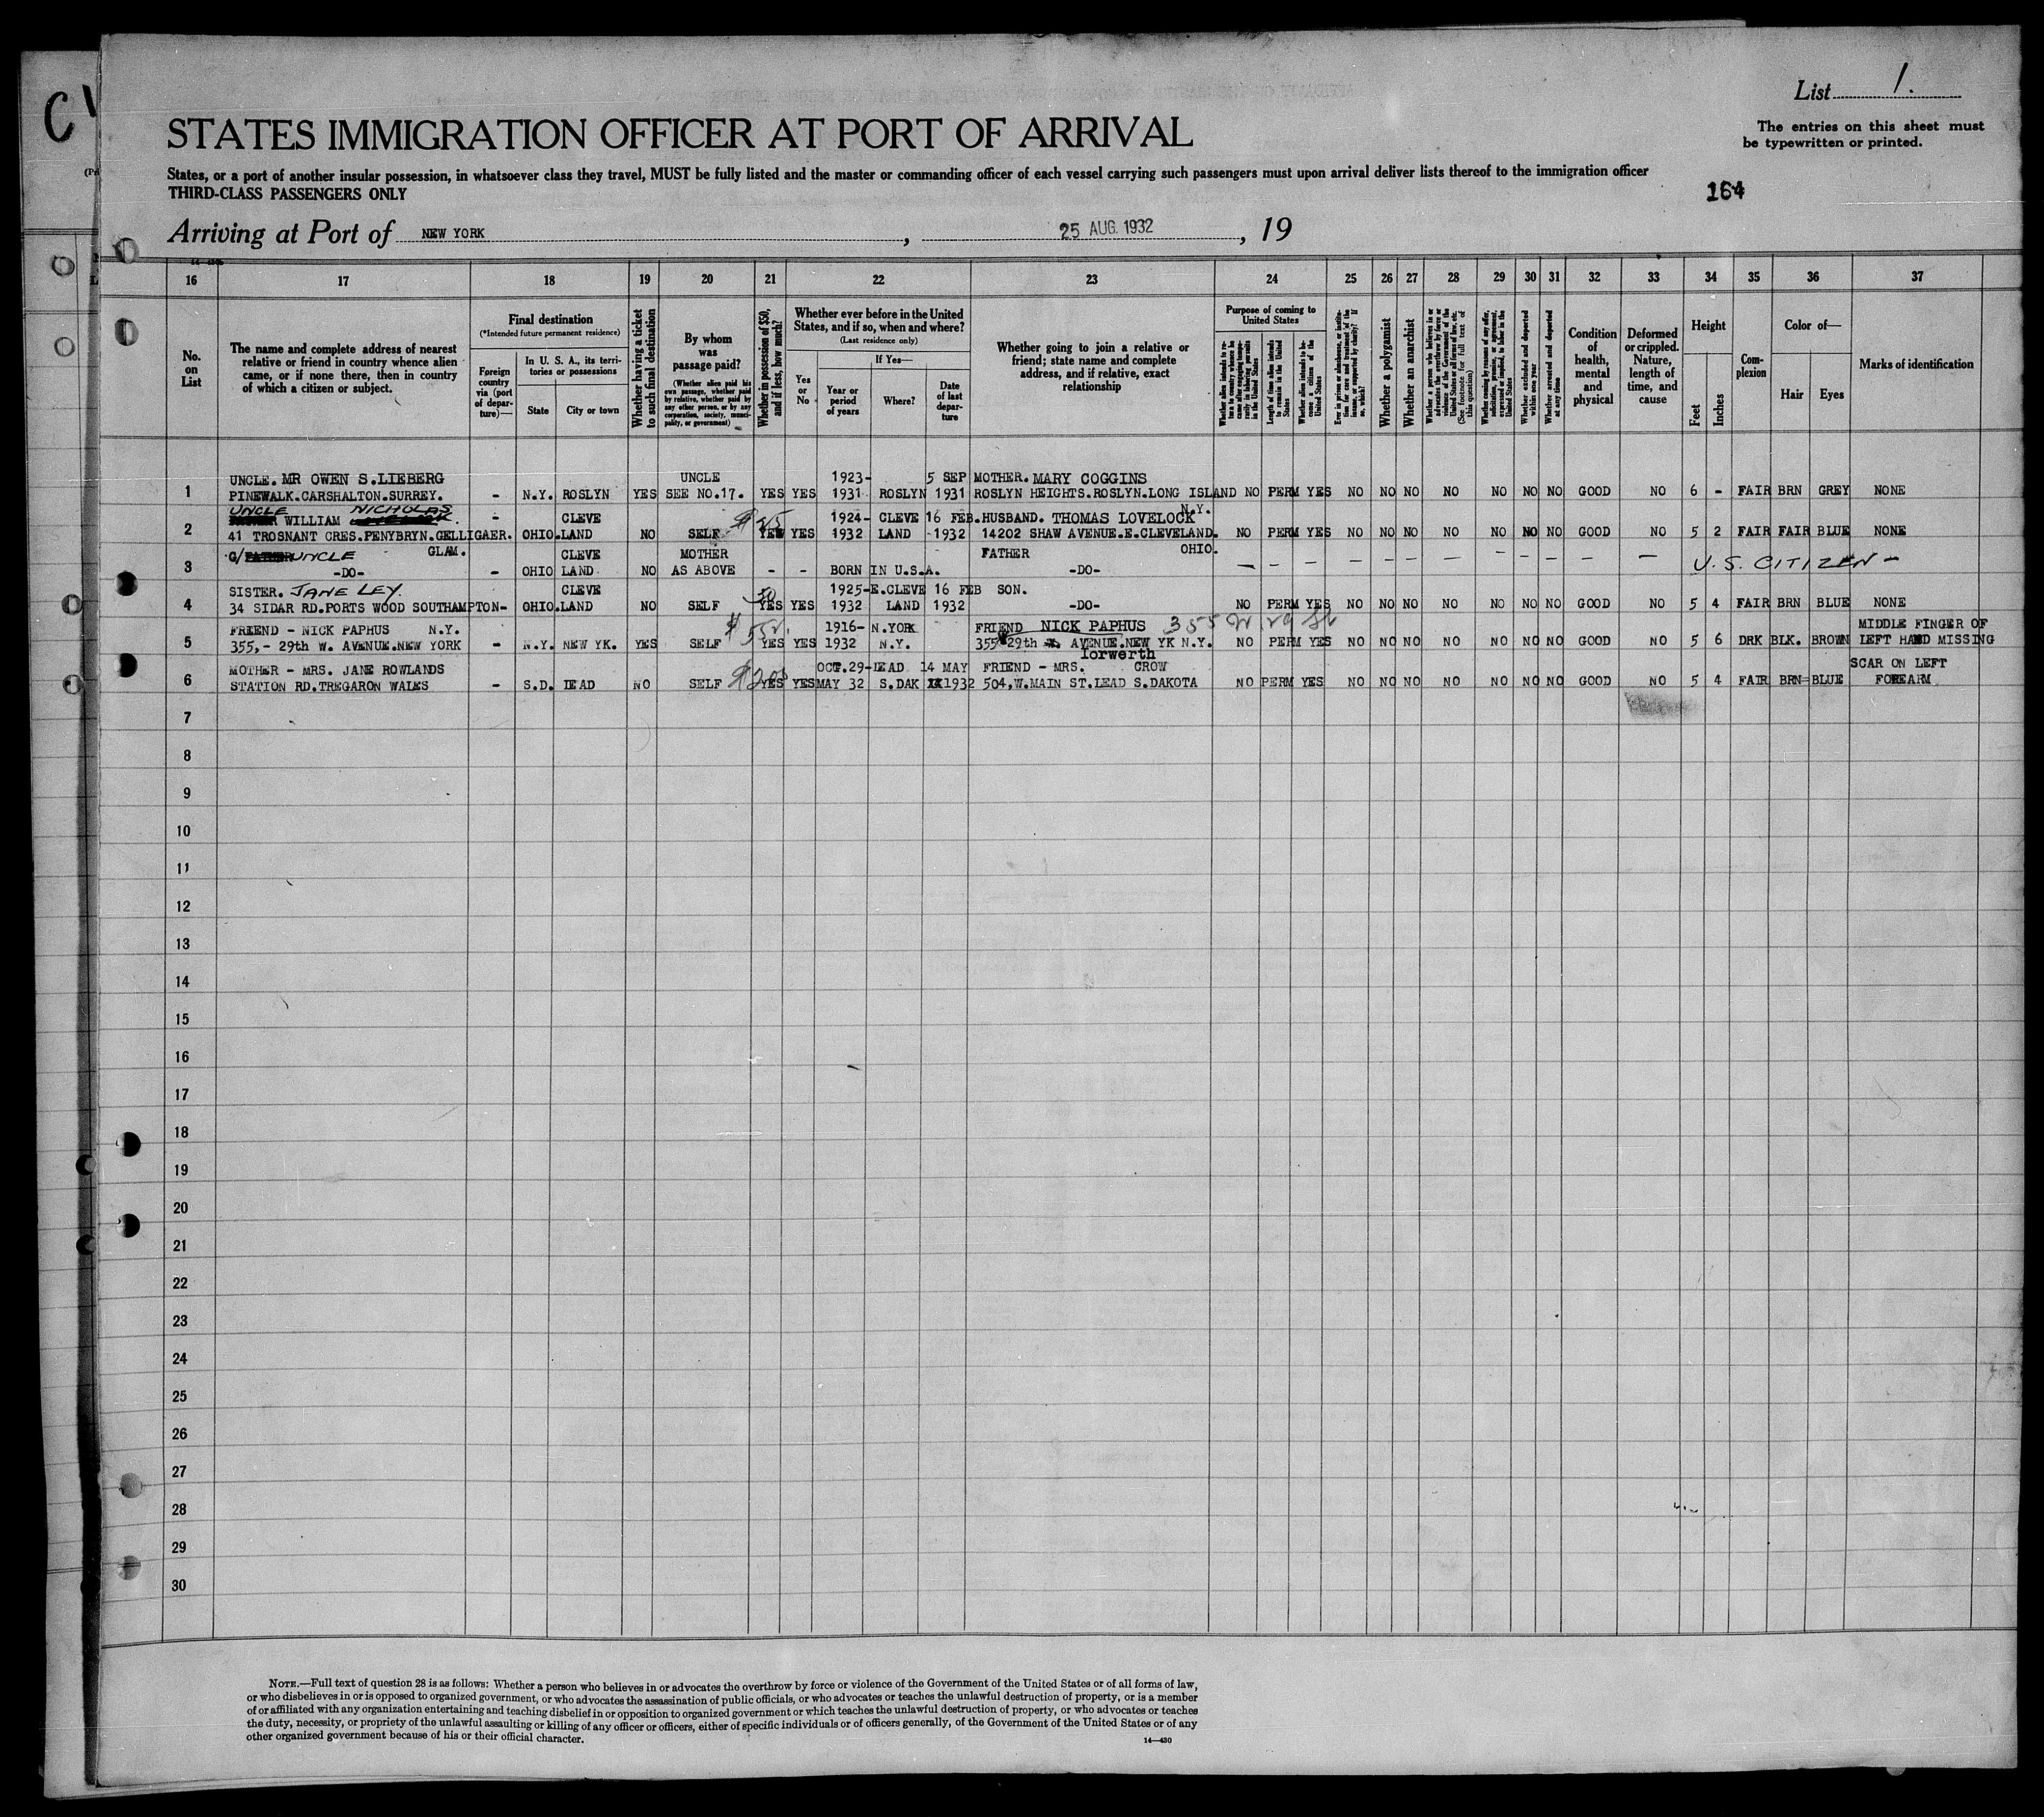 List 1.
The entries on this sheet must
be typewritten or printed.
STATES IMMIGRATION OFFICER AT PORT OF ARRIVAL
States, or a port of another insular possession, in whatsoever class they travel, MUST be fully listed and the master or commanding officer of each vessel carrying such passengers must upon arrival deliver lists thereof to the immigration officer
THIRD-CLASS PASSENGERS ONLY
164
Arriving at Port of NEW YORK , 25 AUG. 1932 , 19
16 17 18 19 20 21 22 23 24 25 26 27 28 29 30 31 32 33 34 35 36 37
No. on List
The name and complete address of nearest
relative or friend in country whence alien
came, or if none there, then in country
of which a citizen or subject.
Final destination
(*Intended future permanent residence)
Foreign country via (port of departure)—
In U. S. A., its territories or possessions
State
City or town
Whether having a ticket to such final destination
By whom was passage paid?
(Whether alien paid his own passage, whether paid by relative, whether paid by any other person, or by any corporation, society, municipality, or government)
Whether in possession of $50, and if less, how much?
Whether ever before in the United
States, and if so, when and where?
(Last residence only)
Yes or No
If Yes—
Year or period of years
Where?
Date of last departure
Whether going to join a relative or
friend; state name and complete
address, and if relative, exact
relationship
Purpose of coming to United States
Length of time alien intends to remain in the United States
Whether alien intends to become a citizen of the United States
Whether a polygamist
Whether an anarchist
Whether excluded and deported within one year
Whether arrested and deported at any time
Condition of health, mental and physical
Deformed or crippled. Nature, length of time, and cause
Height
Feet
Inches
Complexion
Color of—
Hair
Eyes
Marks of identification
UNCLE. MR OWEN S.LIEBERG UNCLE 1923- 5 SEP MOTHER. MARY COGGINS
1 PINEWALK.CARSHALTON.SURREY. - N.Y. ROSLYN YES SEE NO.17. YES YES 1931 ROSLYN 1931 ROSLYN HEIGHTS.ROSLYN.LONG ISLAND NO PERM YES NO NO NO NO NO NO NO GOOD NO 6 - FAIR BRN GREY NONE
N.Y.
UNCLE WILLIAM NICHOLAS. CLEVE 1924- CLEVE 16 FEB. HUSBAND. THOMAS LOVELOCK
2 41 TROSNANT CRES.PENYBRYN.GELLIGAER. - OHIO.LAND NO SELF $25 YES YES 1932 LAND -1932 14202 SHAW AVENUE.E.CLEVELAND. NO PERM YES NO NO NO NO NO NO NO GOOD NO 5 2 FAIR FAIR BLUE NONE
G/ UNCLE GLAM. CLEVE MOTHER FATHER OHIO.
3 -DO- - OHIO LAND NO AS ABOVE - - BORN IN U.S.A. -DO- - - - - - - - - - - - - U.S. CITIZEN -
SISTER. JANE LEY. CLEVE 1925-E.CLEVE 16 FEB SON.
4 34 SIDAR RD.PORTS WOOD SOUTHAMPTON- OHIO.LAND NO SELF 50 YES YES 1932 LAND 1932 -DO- NO PERM YES NO NO NO NO NO NO NO GOOD NO 5 4 FAIR BRN BLUE NONE
FRIEND - NICK PAPHUS N.Y. 1916- N.YORK FRIEND NICK PAPHUS 355 W 29 St MIDDLE FINGER OF
5 355,- 29th W. AVENUE.NEW YORK - N.Y. NEW YK. YES SELF YES YES 1932 N.Y. 355 29th AVENUE.NEW YK N.Y. NO PERM YES NO NO NO NO NO NO NO GOOD NO 5 6 DRK BLK. BROWN LEFT HAND MISSING
MOTHER - MRS. JANE ROWLANDS OCT.29-LEAD 14 MAY FRIEND - MRS. Iorwerth CROW SCAR ON LEFT
6 STATION RD.TREGARON WALES - S.D. LEAD NO SELF $200 YES YES MAY 32 S.DAK 1932 504.W.MAIN ST.LEAD S.DAKOTA NO PERM YES NO NO NO NO NO NO NO GOOD NO 5 4 FAIR BRN BLUE FOREARM
7
8
9
10
11
12
13
14
15
16
17
18
19
20
21
22
23
24
25
26
27
28
29
30
NOTE.—Full text of question 28 is as follows: Whether a person who believes in or advocates the overthrow by force or violence of the Government of the United States or of all forms of law,
or who disbelieves in or is opposed to organized government, or who advocates the assassination of public officials, or who advocates or teaches the unlawful destruction of property, or is a member
of or affiliated with any organization entertaining and teaching disbelief in or opposition to organized government or which teaches the unlawful destruction of property, or who advocates or teaches
the duty, necessity, or propriety of the unlawful assaulting or killing of any officer or officers, either of specific individuals or of officers generally, of the Government of the United States or of any
other organized government because of his or their official character.
14—430